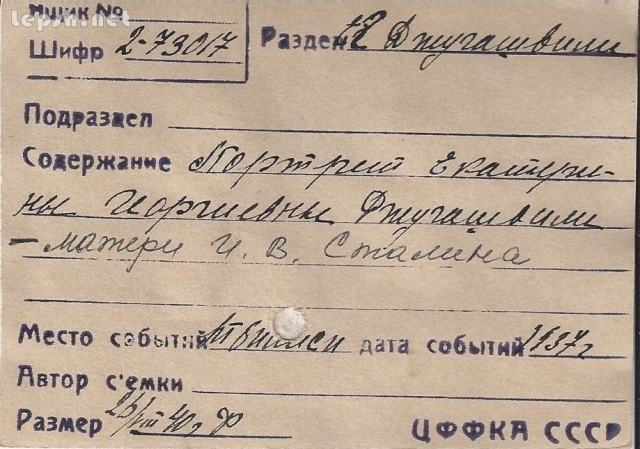 lepsh.net
Ящик №
Шифр 2-73017
Раздел 12 Джугашвили
Подраздел
Содержание Портрет Екатери-
ны Георгиевны Джугашвили
— матери И. В. Сталина
Место событий Тбилиси дата событий 1937 г
Автор съемки
Размер 40 г Ф
ЦФФКА СССР